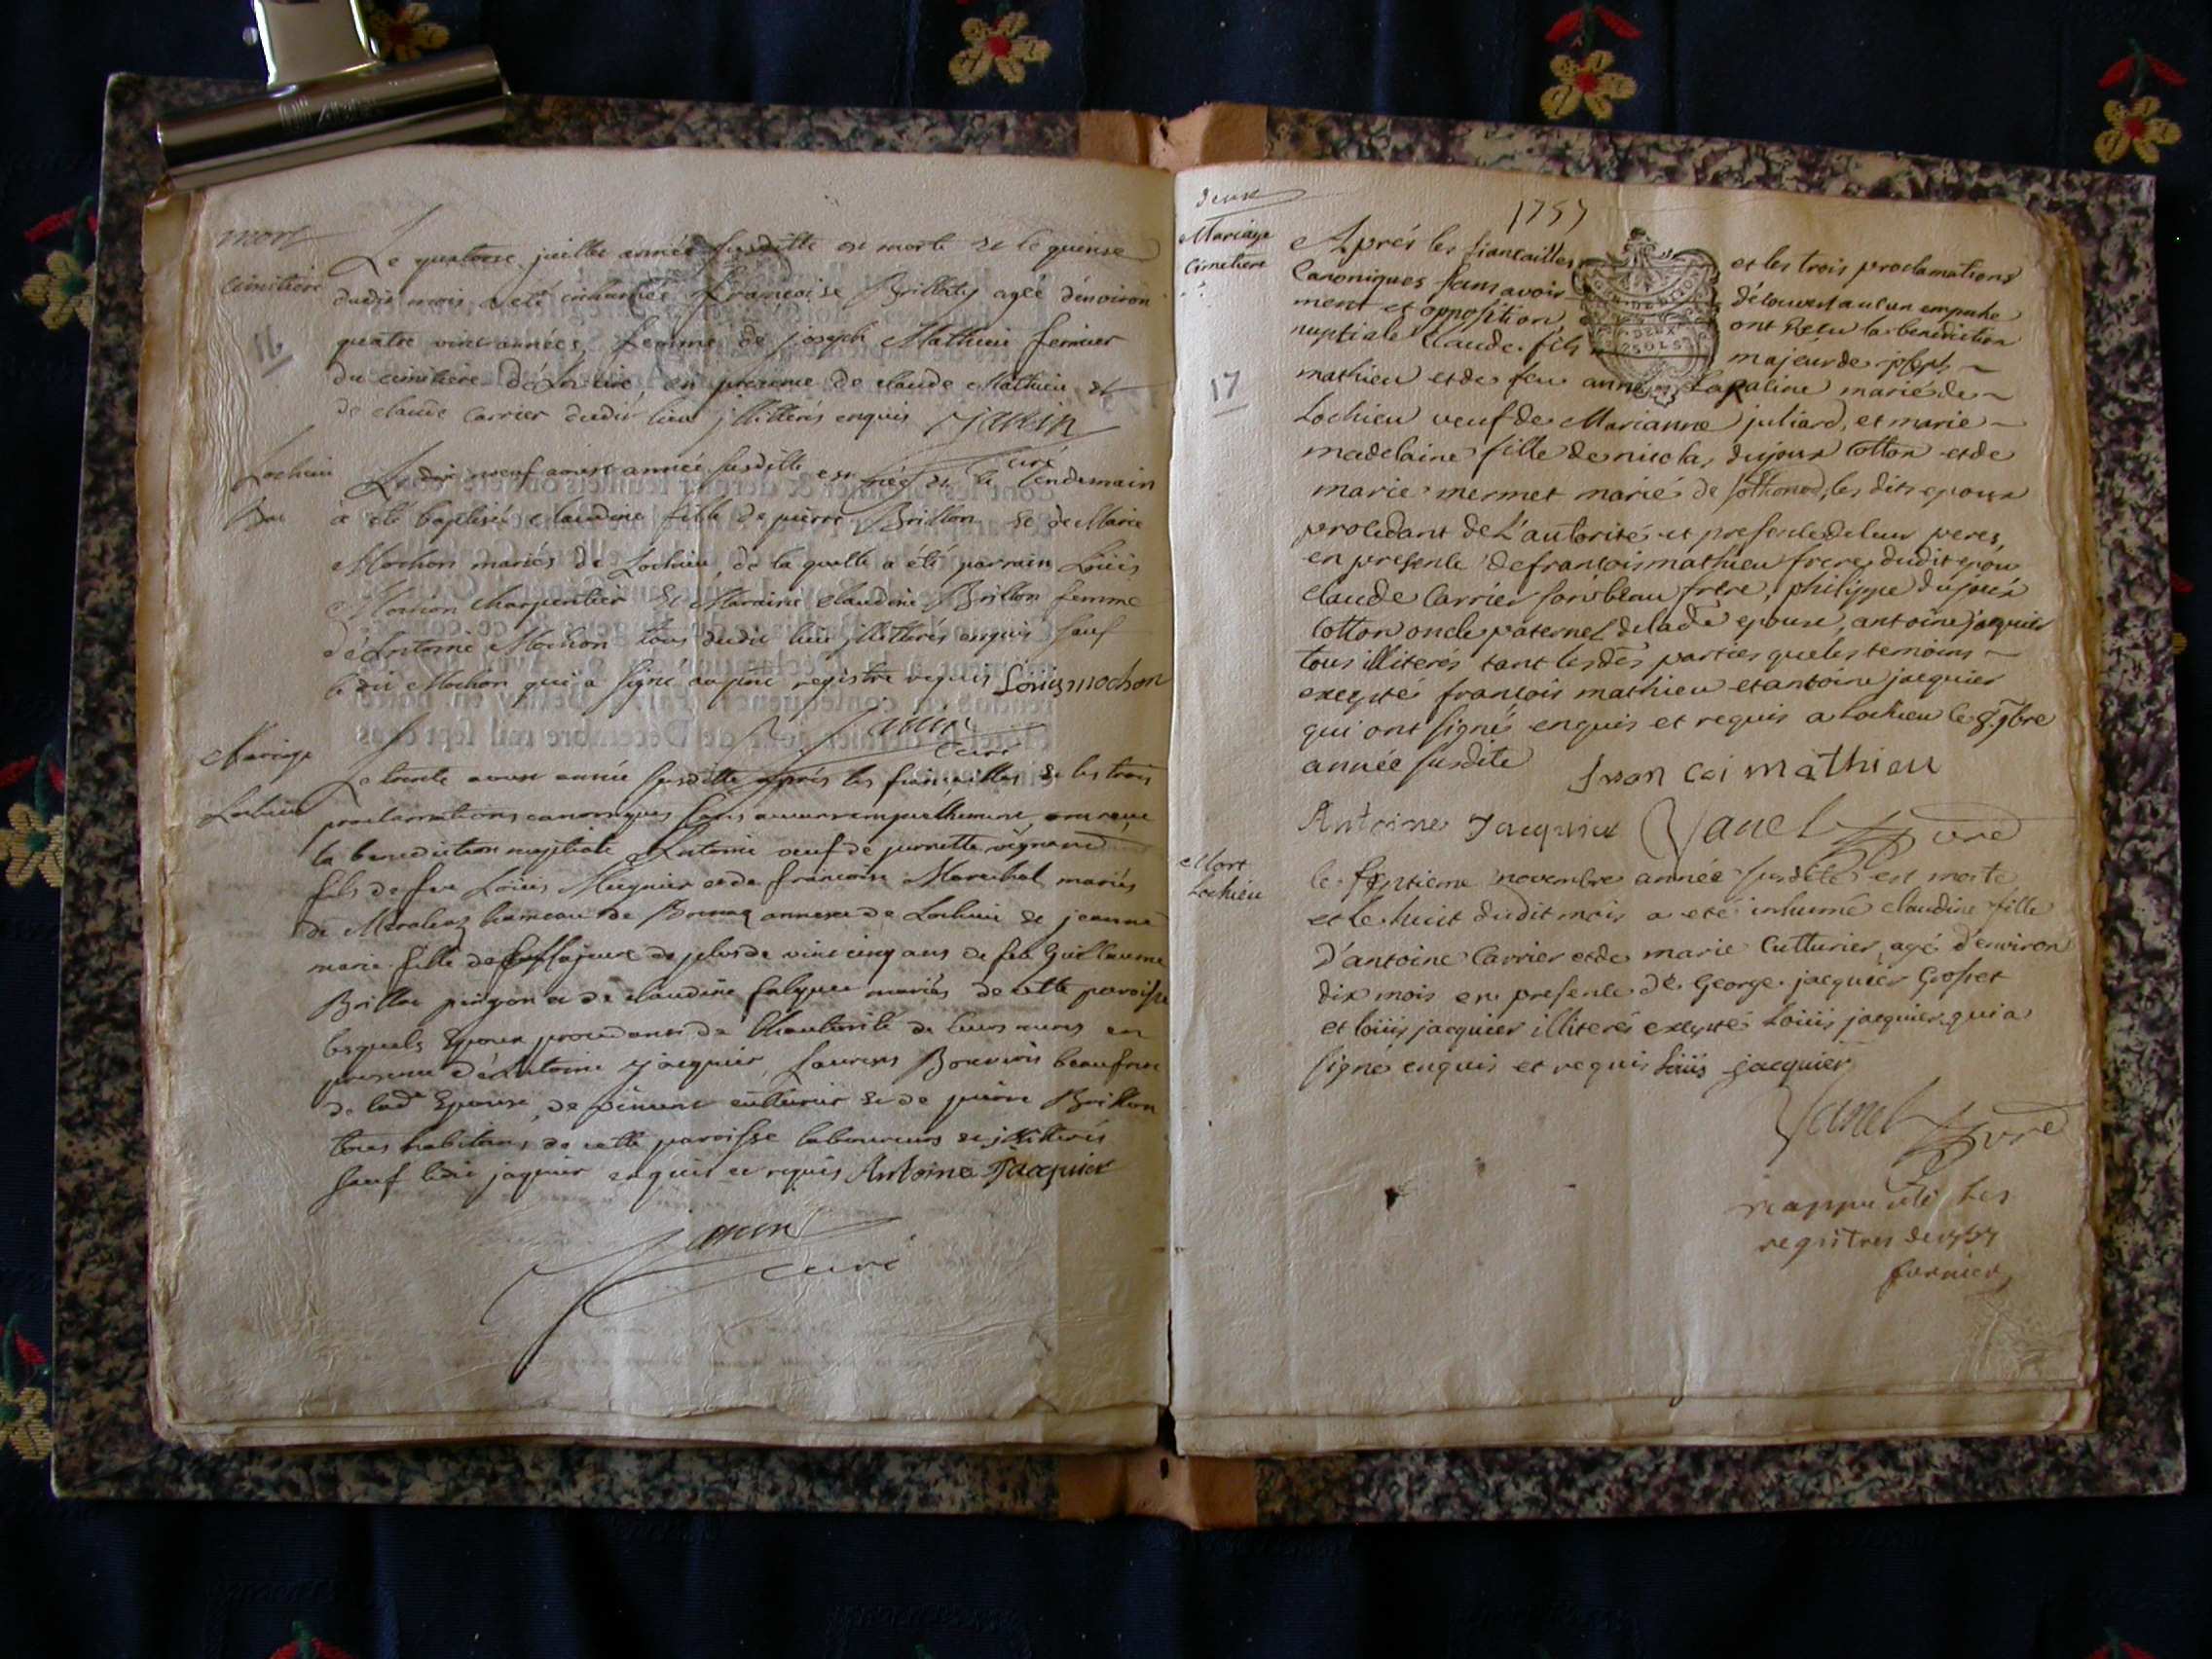 mort
Cimitiere
16
Le quatorse juillet année susditte est morte et le quinse
dudit mois a eté inhumée Francoise Brillat agée d'environ
quatre vint années, femme de joseph Mathieu fermier
du cimitiere de Lochieu en presence de claude Mathieu et
de claude Carrier dudit lieu jllitterés enquis Janin
curé
Lochieu
Bat
Le dix neuf aoust année susditte est née et le lendemain
a été baptisée claudine fille de pierre Brillon et de Marie
Mochon mariés de Lochieu, de la quelle a été parrain Loüis
Mochon charpentier et Maraine claudine Brillon femme
d'Antoine Mochon tous dudit lieu jllitterés enquis sauf
le dit Mochon qui a signé au pnt registre requis Loüis mochon
Janin
curé
Mariage
Lochieu
Le trente aoust année susditte après les fiançailles et les trois
proclamations canoniques sans aucun empechement, ont reçue
la benediction nuptiale Antoine veuf de pernette
fils de feu Loüis Mugnier et de francoise Marechal mariés
de hameau de annexe de Lochieu et jeanne
marie fille majeure de plus de vint cinq ans de feu Guillaume
Brillat et de claudine mariés de cette paroisse
lesquels Epoux procedants de l'hautorité de leurs meres en
presence d'Antoine jacquier, Laurens Bonvoisin beaufrere
de lade Epouse, de vincent cutturier et de pierre Brillon
tous habitans de cette paroisse laboureurs et jllitterés
sauf ledit jaquier enquis et requis Antoine Jacquier
Janin
curé
deux
1757
Mariage
Cimetiere
17
Aprés les fiançailles et les trois proclamations
Canoniques sans avoir découvert aucun empeche
ment et opposition ont Recu la benediction
nuptiale Claude fils majeur de joseph
GEN. DE DIJON
DEUX
SOLS
mathieu et de feu anne Lapaline mariés de
Lochieu veuf de Marianne juliard, et marie
madelaine fille de nicolas dujoux Cotton et de
marie mermet mariés de sothonod, les dits epoux
procedant de L'autorité et presence de leur peres,
en presence de francois mathieu frere dudit epou
claude Carrier son beau frere, philippe dujoux
Cotton oncle paternel de lade epouse, antoine jaquier
tous illiterés tant lesdes parties que les temoins
exepté françois mathieu et antoine jacquier
qui ont signé enquis et requis a Lochieu le 8 9bre
année susdite fran coi mathieu
Antoine Jacquier Janel Curé
Mort
Lochieu
le septieme novembre année susdite est morte
et le huit dudit mois a eté inhumé claudine fille
d'antoine Carrier et de marie Cutturier agé d'environ
dix mois en presence de George jacquier Gosset
et loüis jacquier illiterés exepté Loüis jacquier qui a
signé enquis et requis Loüis jacquier
Janel Curé
registres de 1757